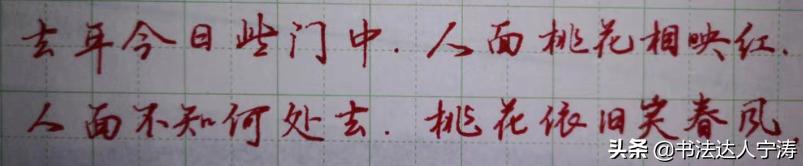 去年今日些门中.人面桃花相映红.
人面不知何处去.桃花依旧笑春风
头条 @书法达人宁涛